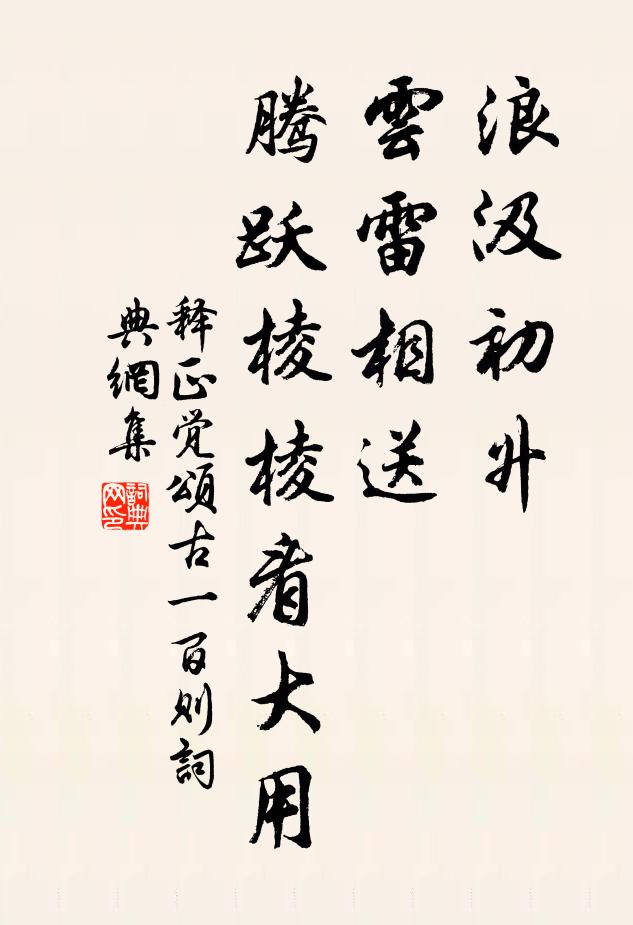 浪汲初升
雲雷相送
腾跃棱棱看大用
释正觉頌古一百则詞
典網集
詞典网印